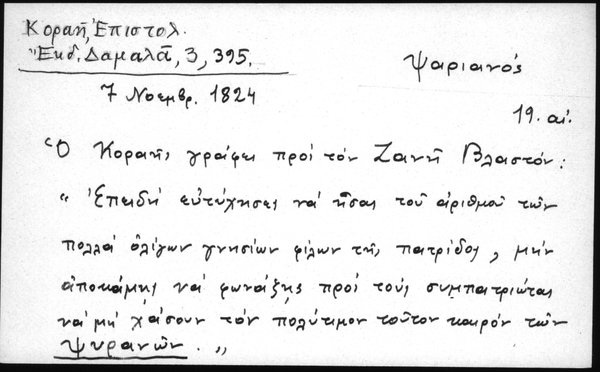 Κοραῆ, Ἐπιστολ.
Ἐκδ. Δαμαλᾶ, 3, 395.
Ψαριανός
7 Νοεμβρ. 1824
19. αἰ.
Ὁ Κοραῆς γράφει πρὸς τὸν Ζαννῆ Βλαστόν:
" Ἐπειδὴ εὐτύχησες νὰ ἦσαι τοῦ ἀριθμοῦ τῶν
πολλὰ ὀλίγων γνησίων φίλων τῆς πατρίδος, μὴν
ἀποκάμῃς νὰ φωνάξῃς πρὸς τοὺς συμπατριώτας
νὰ μὴ χάσουν τὸν πολύτιμον τοῦτον καιρὸν τῶν
Ψυρανῶν. "